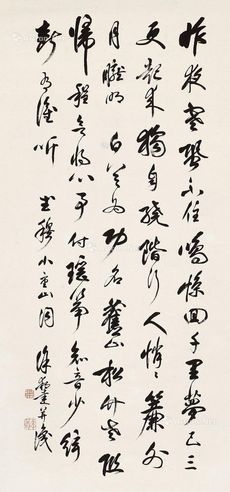 昨夜寒蛩不住鳴驚回千里夢已三
更起來獨自繞階行人悄悄簾外
月朧明白首為功名舊山松竹老阻
歸程欲將心事付瑤箏知音少絃
斷有誰聽 武穆小重山詞 徐